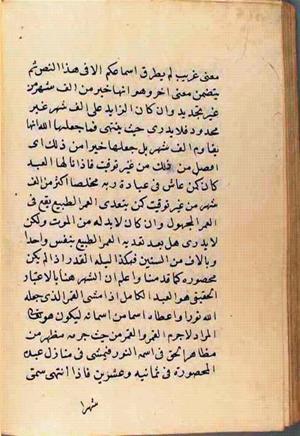 معنى غريب لم يطرق اسماعكم الا فى هذا النص ثم
يتضمن معنى اخر وهو انها خير من الف شهر من
غير تحديد وان كان الزايد على الف شهر غير
محدود فلا يدرى حيث ينتهى فما جعلها الله انها
تقاوم الف شهر بل جعلها خيرا من ذلك اى
افضل من ذلك من غير توقيت فاذا نالها العبد
كان كمن عاش فى عبادة ربه مخلصا اكثر من الف
شهر من غير توقيت كمن يتعدى العمر الطبيع يقع فى
العمر المجهول وان كان لا بد له من الموت ولكن
لا يدرى هل بعد تعديه العمر الطبيع بنفس واحد
او بالاف من السنين فهكذا ليلة القدر اذا لم يكن
محصوره كما قدمنا واعلم ان الشهر هنا بالاعتبار
الحقيقى هو العبد الكامل اذا مشى القمر الذى جعله
الله نورا واعطاه اسما من اسمائه ليكون هو تعالى
المراد لا جرم القمر والقمر من حيث جرمه مظهر من
مظاهر الحق فى اسمه النور فيمشى فى منازل عبده
المحصورة فى ثمانيه وعشرين فاذا انتهى سمى
شهرا